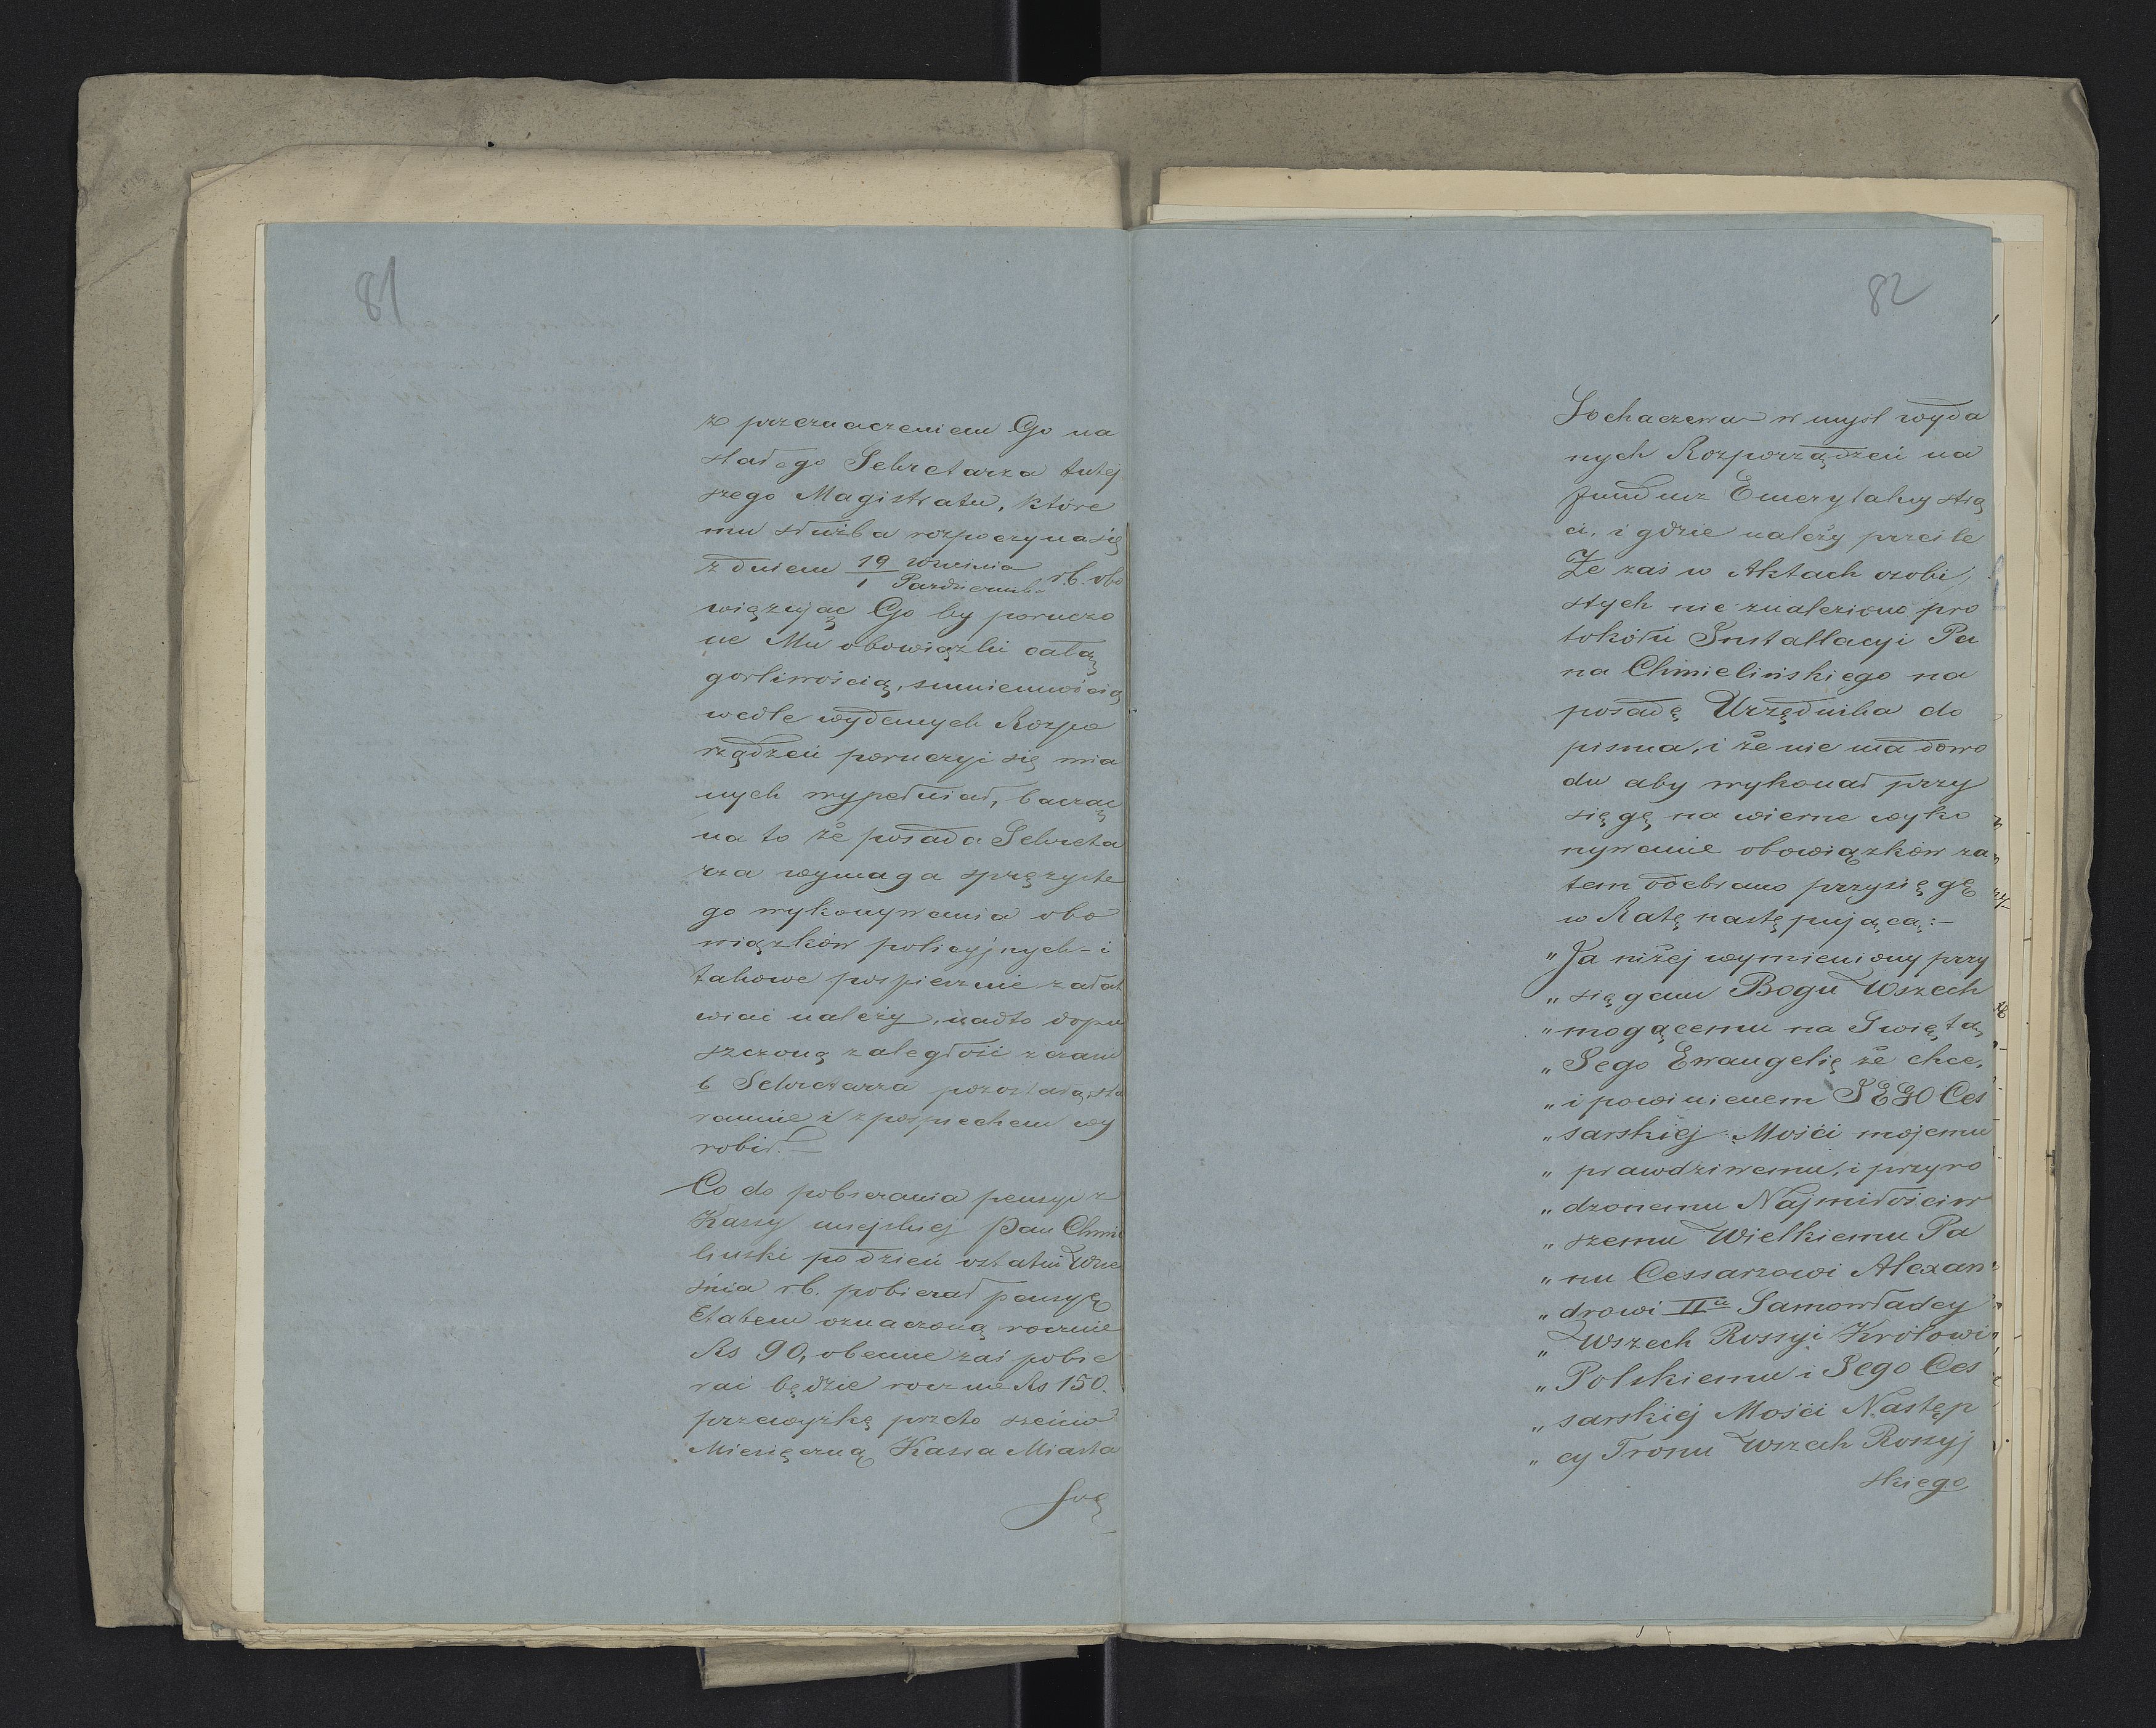 81
z przeznaczeniem Go na
stałego Sekretarza tutej
szego Magistratu, które
mu służba rozpoczyna się
z dniem 19 Września / 1 Październik r.b. obo
wiązując Go by poruczo
ne Mu obowiązki całą
gorliwością, sumiennością
wedle wydanych Rozpo
rządzeń poruczyć się mia
nych wypełniał, bacząc
na to że posada Sekreta
rza wymaga sprężyste
go wykonywania obo
wiązków policyjnych i
takowe pospiesznie załat
wiać należy, nadto dopu
szczoną zaległość z czasu
b Sekretarza pozostałą, sta
rannie i z pospiechem wy
robił.
Co do pobierania pensyi z
Kassy miejskiej Pan Chmie
liński po dzień ostatni Wrze
śnia r.b. pobierał pensyę
Etatem oznaczoną rocznie
Rs 90, obecnie zaś pobie
rać będzie rocznie Rs 150.
przewyżkę przeto sześcio
Miesięczną Kassa Miasta
Soc
82
Sochaczewa w myśl wyda
nych Rozporządzeń na
fundusz Emerytalny strą
ci, i gdzie należy prześle
Że zaś w Aktach osobi
stych nie znaleziono pro
tokółu Installacyi Pa
na Chmielińskiego na
posadę Urzędnika do
pisma, i że nie ma dowo
du aby wykonał przy
sięgę na wierne wyko
nywanie obowiązków za
tem odebrano przysięgę
w Rotę następującą:-
„Ja niżej wymieniony przy
„sięgam Bogu Wszech
„mogącemu na Świętą
„Jego Ewangelię że chcę,
„i powinienem JEGO Ces
„sarskiej Mości mojemu
„prawdziwemu, i przyro
„dzonemu Najmiłościw
„szemu Wielkiemu Pa
„nu Cessarzowi Alexan
„drowi II Samowładcy
„Wszech Rossyi Królowi
„Polskiemu i Jego Ces
„sarskiej Mości Następ
„cy Tronu Wszech Rossyj
skiego